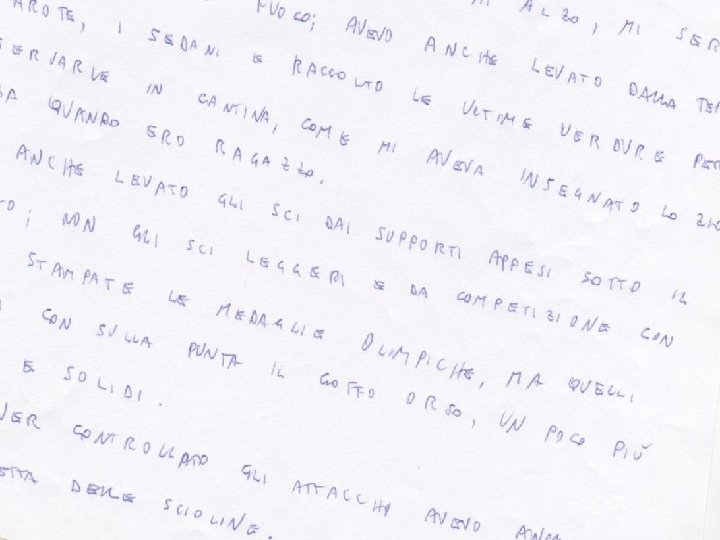 MI ALZO, MI SER
FUOCO; AVEVO ANCHE LEVATO DALLA TER
AROTE, I SEDANI E RACCOLTO LE ULTIME VERDURE PER
SERVARLE IN CANTINA, COME MI AVEVA INSEGNATO LO ZIO
QUANDO ERO RAGAZZO.
ANCHE LEVATO GLI SCI DAI SUPPORTI APPESI SOTTO IL
TO; NON GLI SCI LEGGERI E DA COMPETIZIONE CON
STAMPATE LE MEDAGLIE OLIMPICHE, MA QUELLI
CON SULLA PUNTA IL GOFFO ORSO, UN POCO PIÙ
E SOLIDI.
VER CONTROLLATO GLI ATTACCHI AVEVO ANC
ETTA DELLE SCIOLINE.